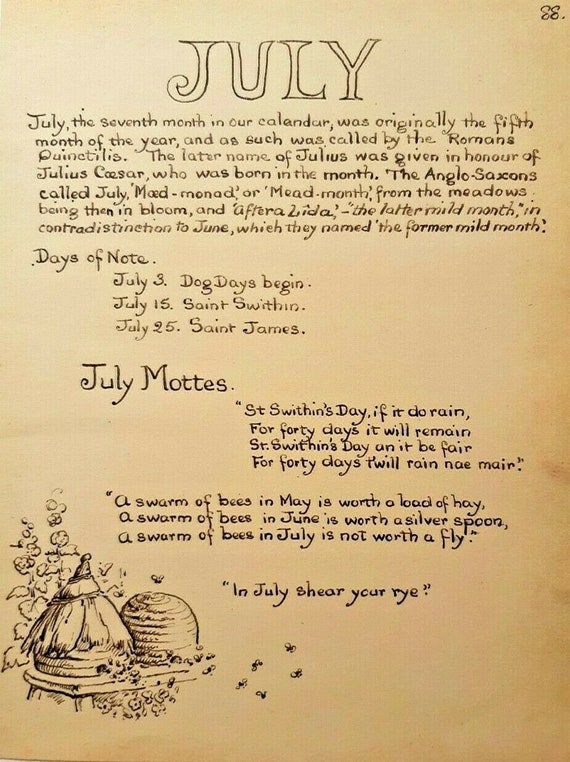 88.
JULY
July, the seventh month in our calandar, was originally the fifth
month of the year, and as such was called by the Romans
Quinctilis. The later name of Julius was given in honour of
Julius Cæsar, who was born in the month. The Anglo-Saxons
called July, 'Mæd-monað,' or 'Mead-month,' from the meadows
being then in bloom, and 'Aftera Lida,' - "the latter mild month," in
contradistinction to June, which they named 'the former mild month'.
Days of Note.
July 3. Dog Days begin.
July 15. Saint Swithin.
July 25. Saint James.
July Mottes.
"St Swithin's Day, if it do rain,
For forty days it will remain
St. Swithin's Day an it be fair
For forty days t'will rain nae mair."
"A swarm of bees in May is worth a load of hay,
A swarm of bees in June is worth a silver spoon,
A swarm of bees in July is not worth a fly."
"In July shear your rye".